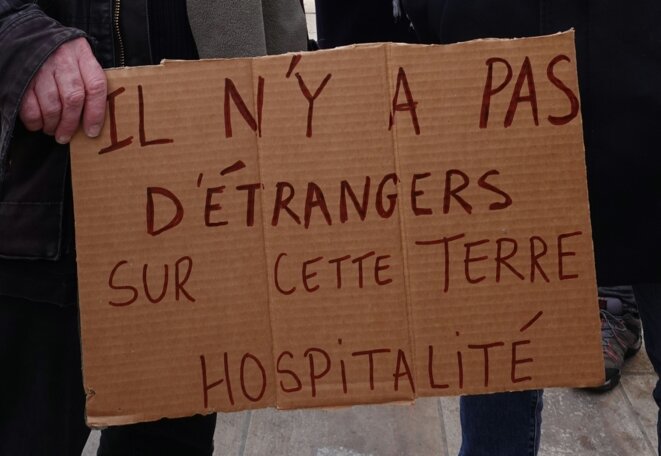 IL N'Y A PAS
D'ÉTRANGERS
SUR CETTE TERRE
HOSPITALITÉ